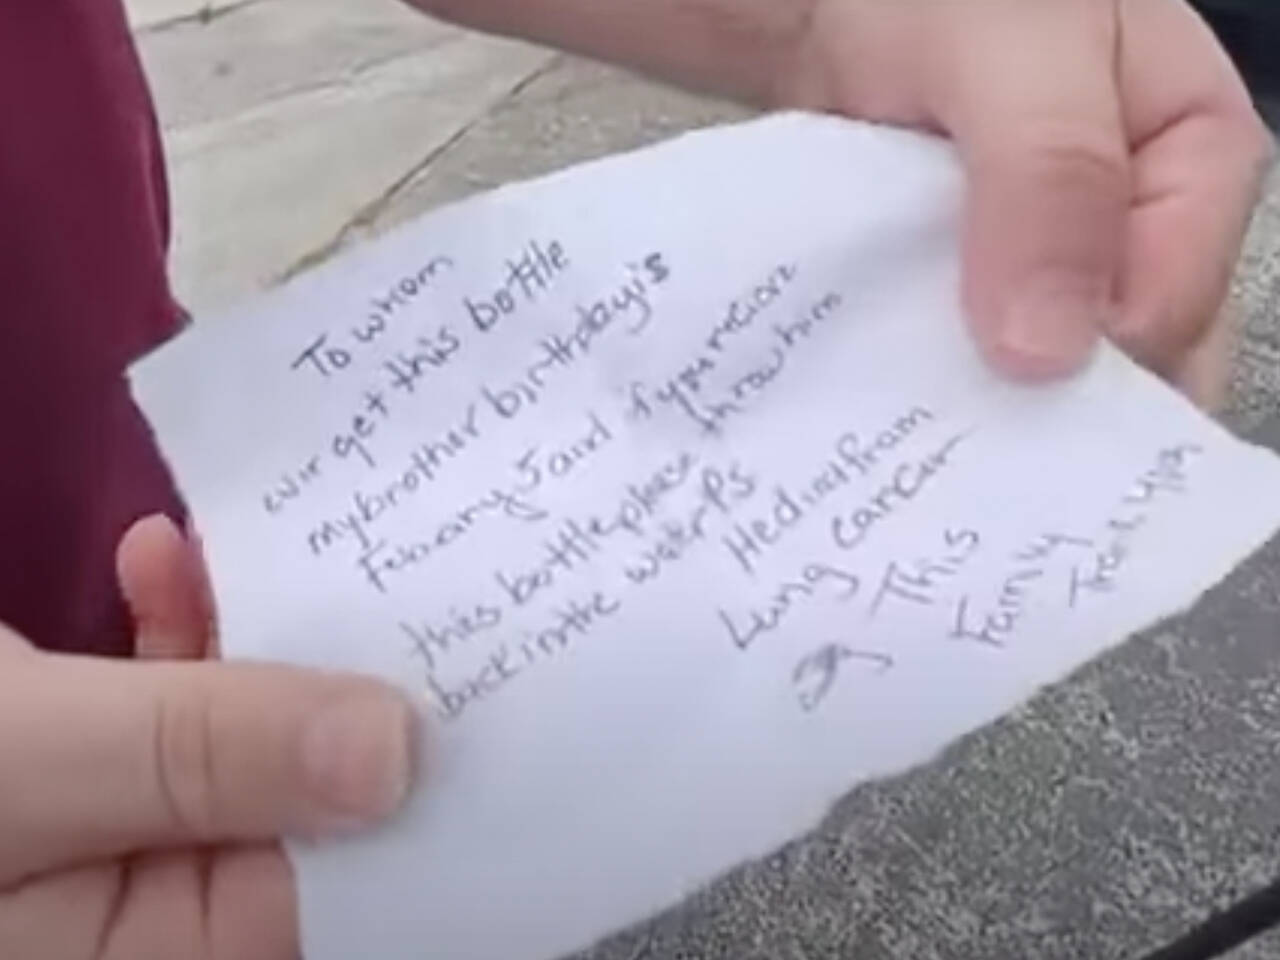 To whom
ever get this bottle
my brother birthday is
Febuary 5 and if you recieve
this bottle please throw him
back in the water Ps
He died from
Lung cancer
This
Family